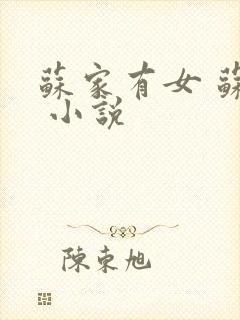 蘇家有女 蘇
小說
陳東旭